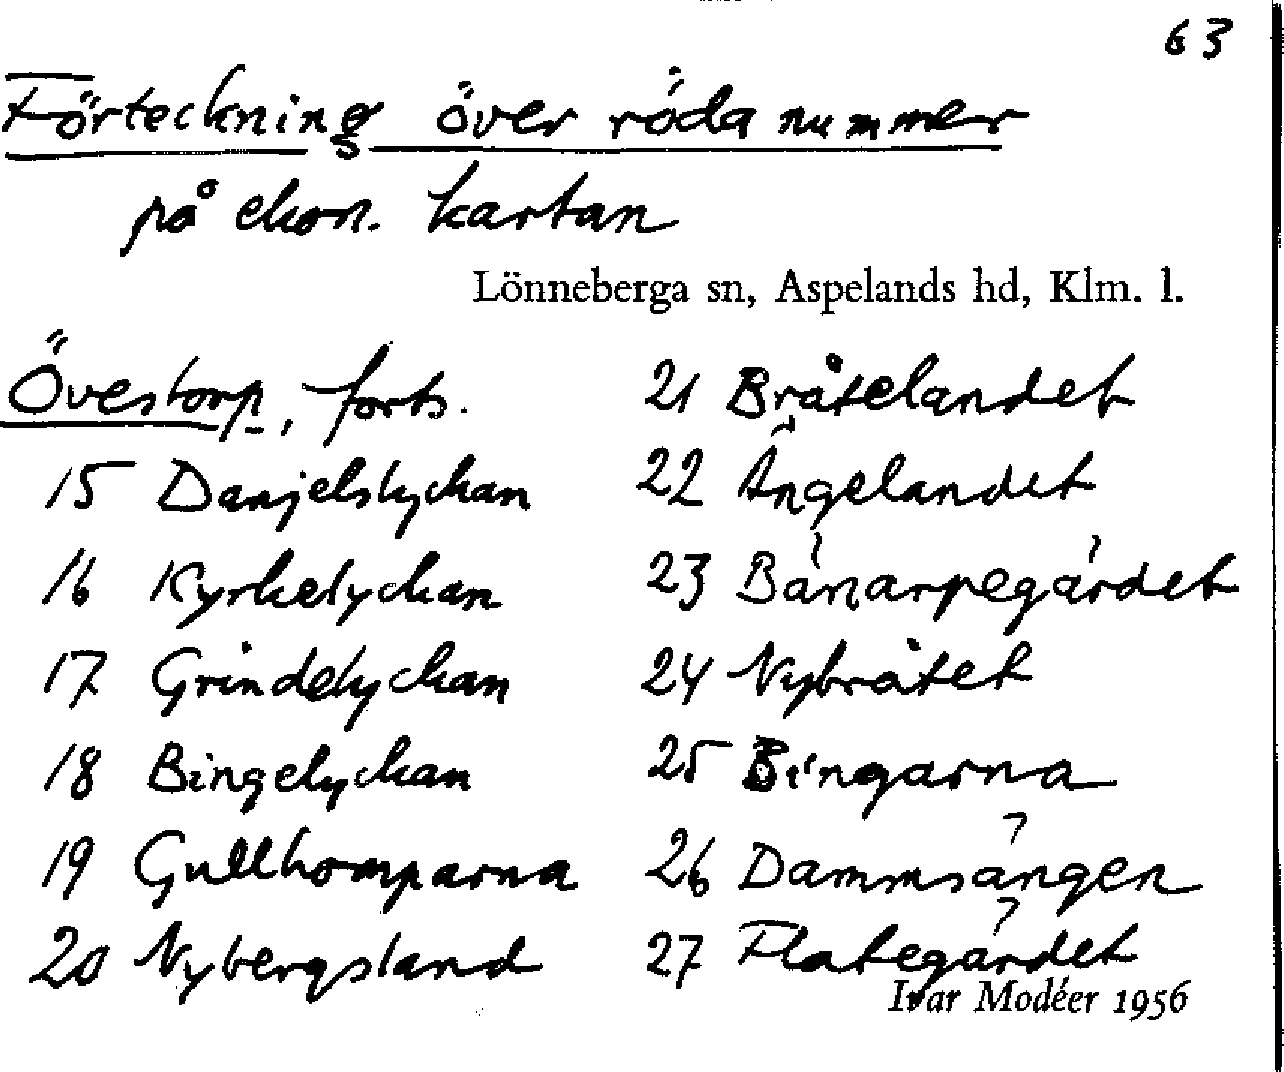 63
Förteckning över röda nummer
på ekon. kartan
Lönneberga sn, Aspelands hd, Klm. l.
Övestorp, forts.
15 Danjelslyckan
16 Kyrkelyckan
17 Grindelyckan
18 Bingelyckan
19 Gullhomparna
20 Nybergsland
21 Bråtelandet
22 Ängelandet
23 Bånarpegärdet
24 Nybråtet
25 Bingarna
26 Dammsängen
27 Flategärdet
Ivar Modéer 1956